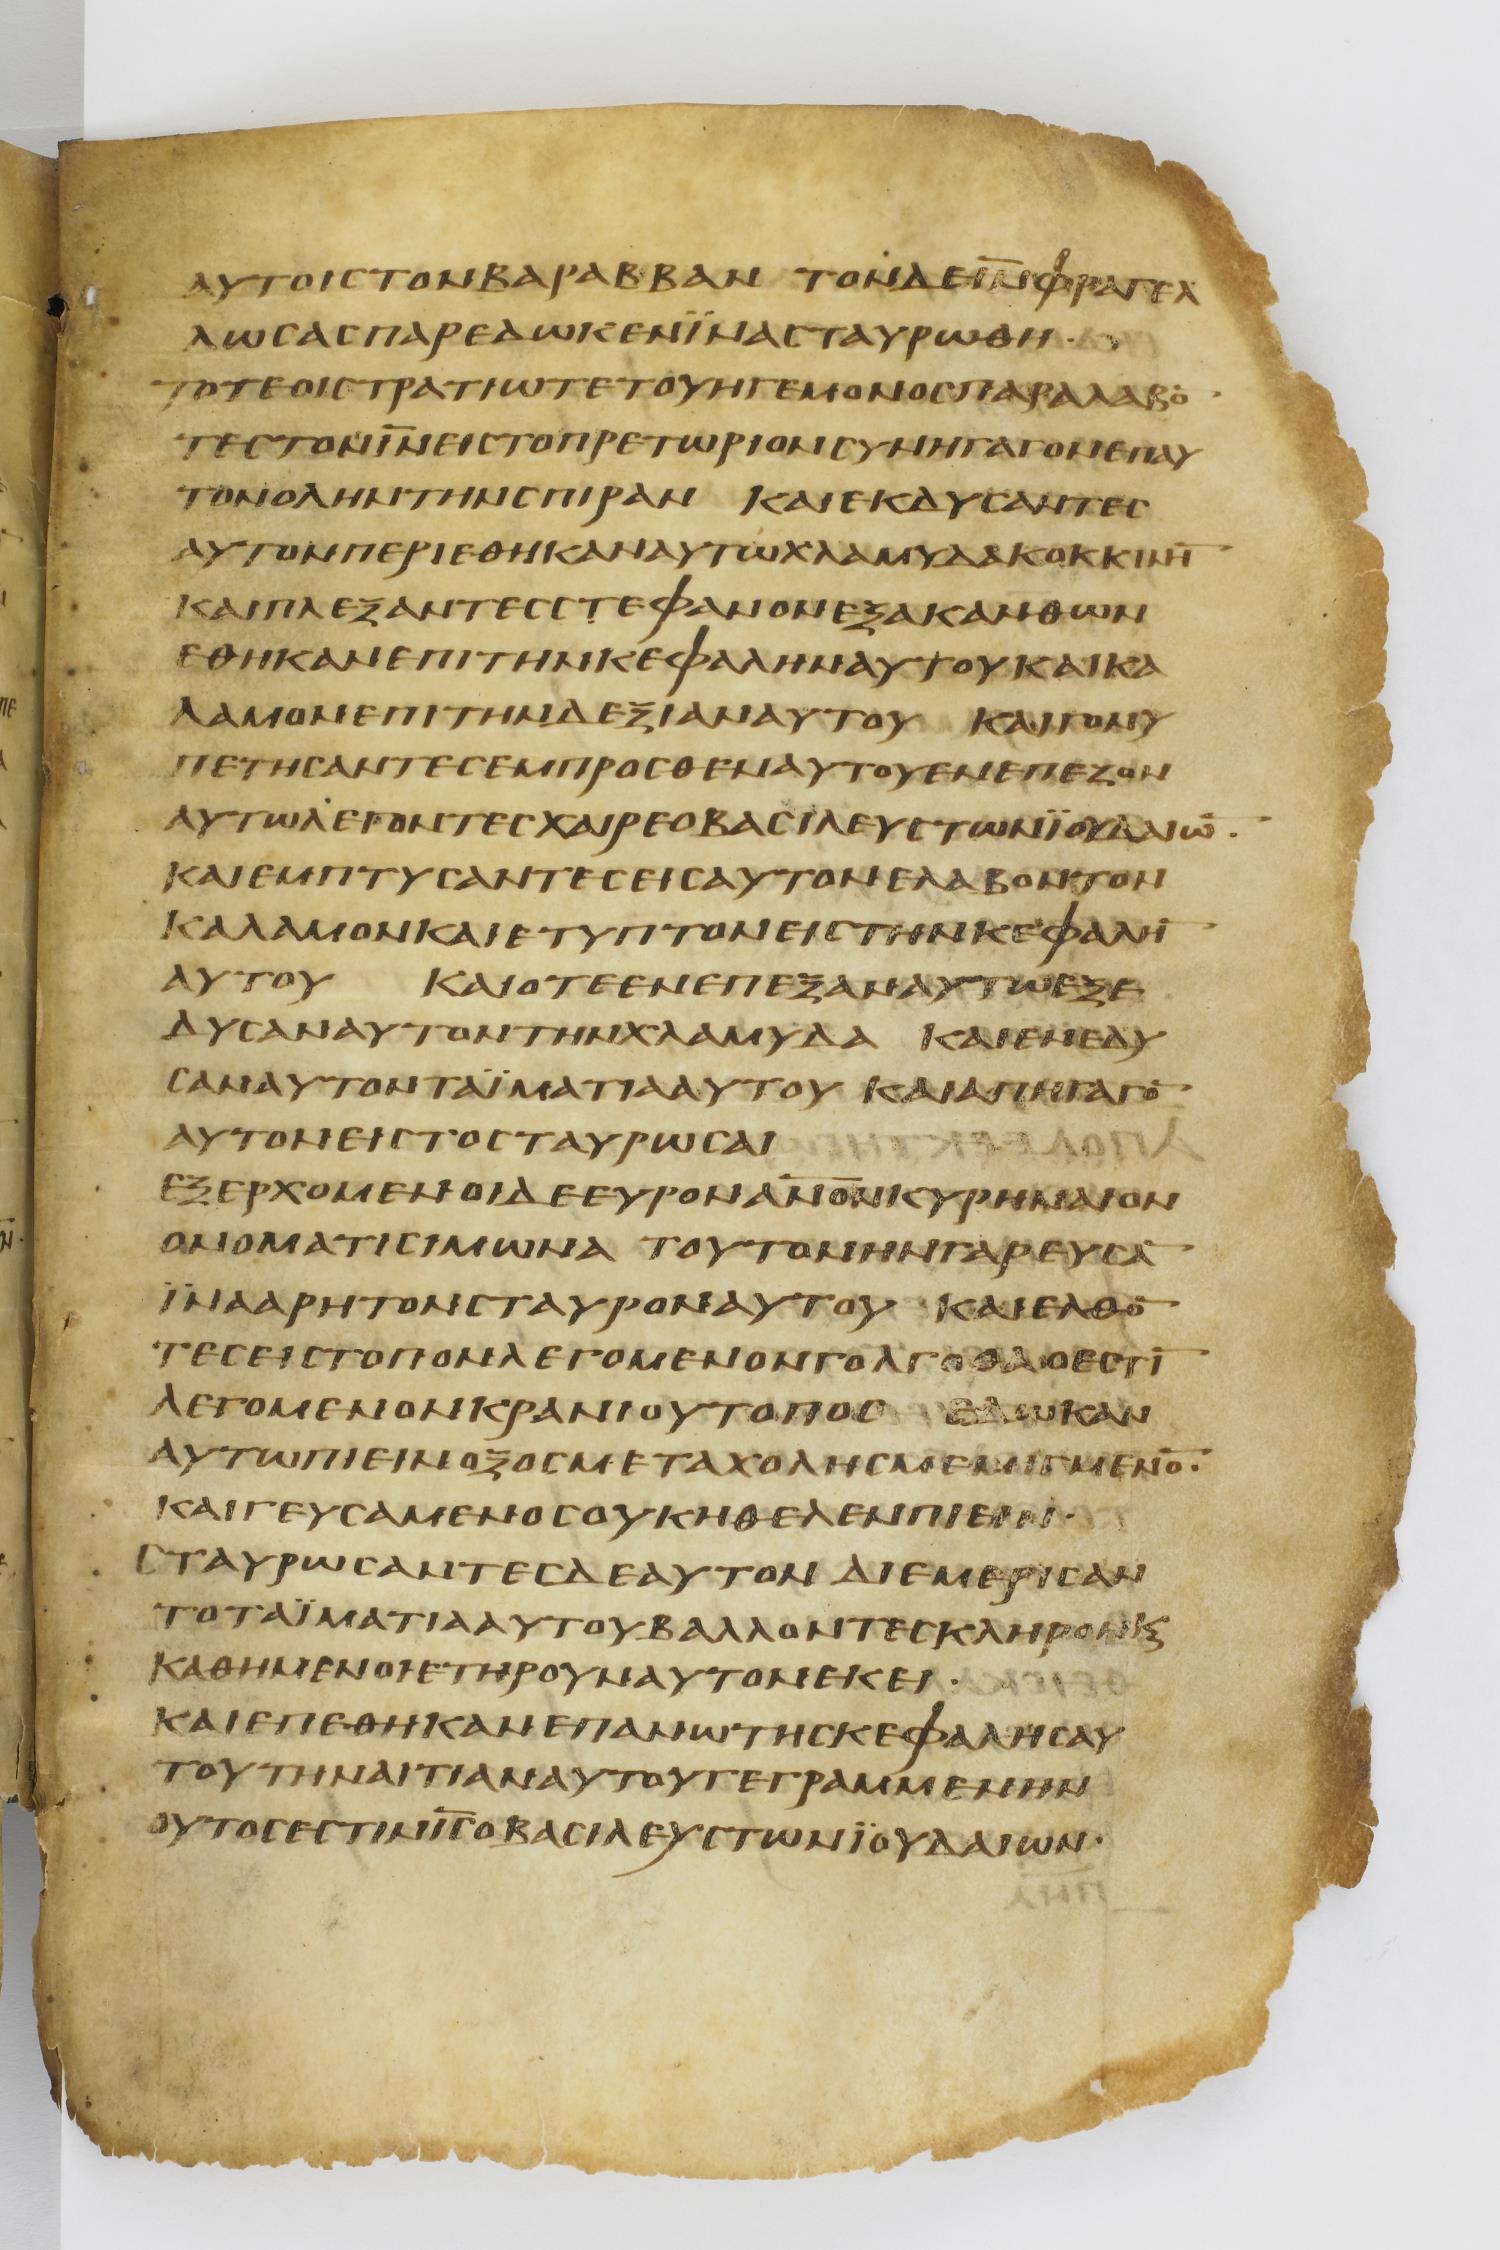 ΑΥΤΟΙСΤΟΝΒΑΡΑΒΒΑΝ ΤΟΝΔΕΙ̅Ν̅ΦΡΑΓΕΛ
ΛΩСΑСΠΑΡΕΔΩΚΕΝΪΝΑСΤΑΥΡΩΘΗ·
ΤΟΤΕΟΙСΤΡΑΤΙΩΤΕΤΟΥΗΓΕΜΟΝΟСΠΑΡΑΛΑΒΟ̅
ΤΕСΤΟΝΙ̅Ν̅ΕΙСΤΟΠΡΕΤΩΡΙΟΝСΥΝΗΓΑΓΟΝΕΠΑΥ
ΤΟΝΟΛΗΝΤΗΝСΠΙΡΑΝ ΚΑΙΕΚΔΥСΑΝΤΕС
ΑΥΤΟΝΠΕΡΙΕΘΗΚΑΝΑΥΤΩΧΛΑΜΥΔΑΚΟΚΚΙΝΗ̅
ΚΑΙΠΛΕΞΑΝΤΕССΤΕΦΑΝΟΝΕΞΑΚΑΝΘΩΝ
ΕΘΗΚΑΝΕΠΙΤΗΝΚΕΦΑΛΗΝΑΥΤΟΥΚΑΙΚΑ
ΛΑΜΟΝΕΠΙΤΗΝΔΕΞΙΑΝΑΥΤΟΥ ΚΑΙΓΟΝΥ
ΠΕΤΗСΑΝΤΕСΕΜΠΡΟСΘΕΝΑΥΤΟΥΕΝΕΠΕΖΟΝ
ΑΥΤΩΛΕΓΟΝΤΕСΧΑΙΡΕΟΒΑСΙΛΕΥСΤΩΝΪΟΥΔΑΙΩ̅·
ΚΑΙΕΜΠΤΥСΑΝΤΕСΕΙСΑΥΤΟΝΕΛΑΒΟΝΤΟΝ
ΚΑΛΑΜΟΝΚΑΙΕΤΥΠΤΟΝΕΙСΤΗΝΚΕΦΑΛΗ̅
ΑΥΤΟΥ ΚΑΙΟΤΕΕΝΕΠΕΞΑΝΑΥΤΩΕΞΕ
ΔΥСΑΝΑΥΤΟΝΤΗΝΧΛΑΜΥΔΑ ΚΑΙΕΝΕΔΥ
СΑΝΑΥΤΟΝΤΑΪΜΑΤΙΑΑΥΤΟΥ ΚΑΙΑΠΗΓΑΓΟ̅
ΑΥΤΟΝΕΙСΤΟСΤΑΥΡΩСΑΙ
ΕΞΕΡΧΟΜΕΝΟΙΔΕΕΥΡΟΝΑ̅Ν̅Ο̅Ν̅ΚΥΡΗΝΑΙΟΝ
ΟΝΟΜΑΤΙСΙΜΩΝΑ ΤΟΥΤΟΝΗΝΓΑΡΕΥСΑ̅
ΪΝΑΑΡΗΤΟΝСΤΑΥΡΟΝΑΥΤΟΥ ΚΑΙΕΛΘΟ̅
ΤΕСΕΙСΤΟΠΟΝΛΕΓΟΜΕΝΟΝΓΟΛΓΟΘΑΟΕСΤΙ̅
ΛΕΓΟΜΕΝΟΝΚΡΑΝΙΟΥΤΟΠΟС ΕΔΩΚΑΝ
ΑΥΤΩΠΙΕΙΝΟΞΟСΜΕΤΑΧΟΛΗСΜΕΜΙΓΜΕΝΟ̅·
ΚΑΙΓΕΥСΑΜΕΝΟСΟΥΚΗΘΕΛΕΝΠΙΕΙΝ·
СΤΑΥΡΩСΑΝΤΕСΔΕΑΥΤΟΝ ΔΙΕΜΕΡΙСΑΝ
ΤΟΤΑΪΜΑΤΙΑΑΥΤΟΥΒΑΛΛΟΝΤΕСΚΛΗΡΟΝϗ
ΚΑΘΗΜΕΝΟΙΕΤΗΡΟΥΝΑΥΤΟΝΕΚΕΙ·
ΚΑΙΕΠΕΘΗΚΑΝΕΠΑΝΩΤΗСΚΕΦΑΛΗСΑΥ
ΤΟΥΤΗΝΑΙΤΙΑΝΑΥΤΟΥΓΕΓΡΑΜΜΕΝΗΝ
ΟΥΤΟСΕСΤΙΝΙ̅С̅ΟΒΑСΙΛΕΥСΤΩΝΪΟΥΔΑΙΩΝ·